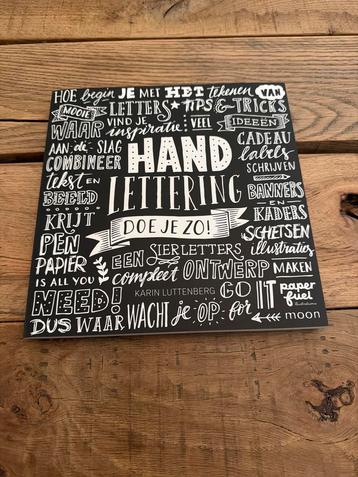 HOE begin JE MET HET tekenen VAN
MOOIE LETTERS TIPS & TRICKS
WAAR VIND JE inspiratie VEEL IDEEËN
AAN de SLAG CADEAU
COMBINEER HAND labels
tekst EN SCHRIJVEN
BEELD LETTERING BANNERS
KRIJT EN KADERS
PEN DOE JE ZO! SCHETSEN
PAPIER EEN SIERLETTERS illustraties
IS ALL YOU compleet ONTWERP MAKEN
NEED! KARIN LUTTENBERG GO IT paper fuel
DUS WAAR WACHT je OP for moon